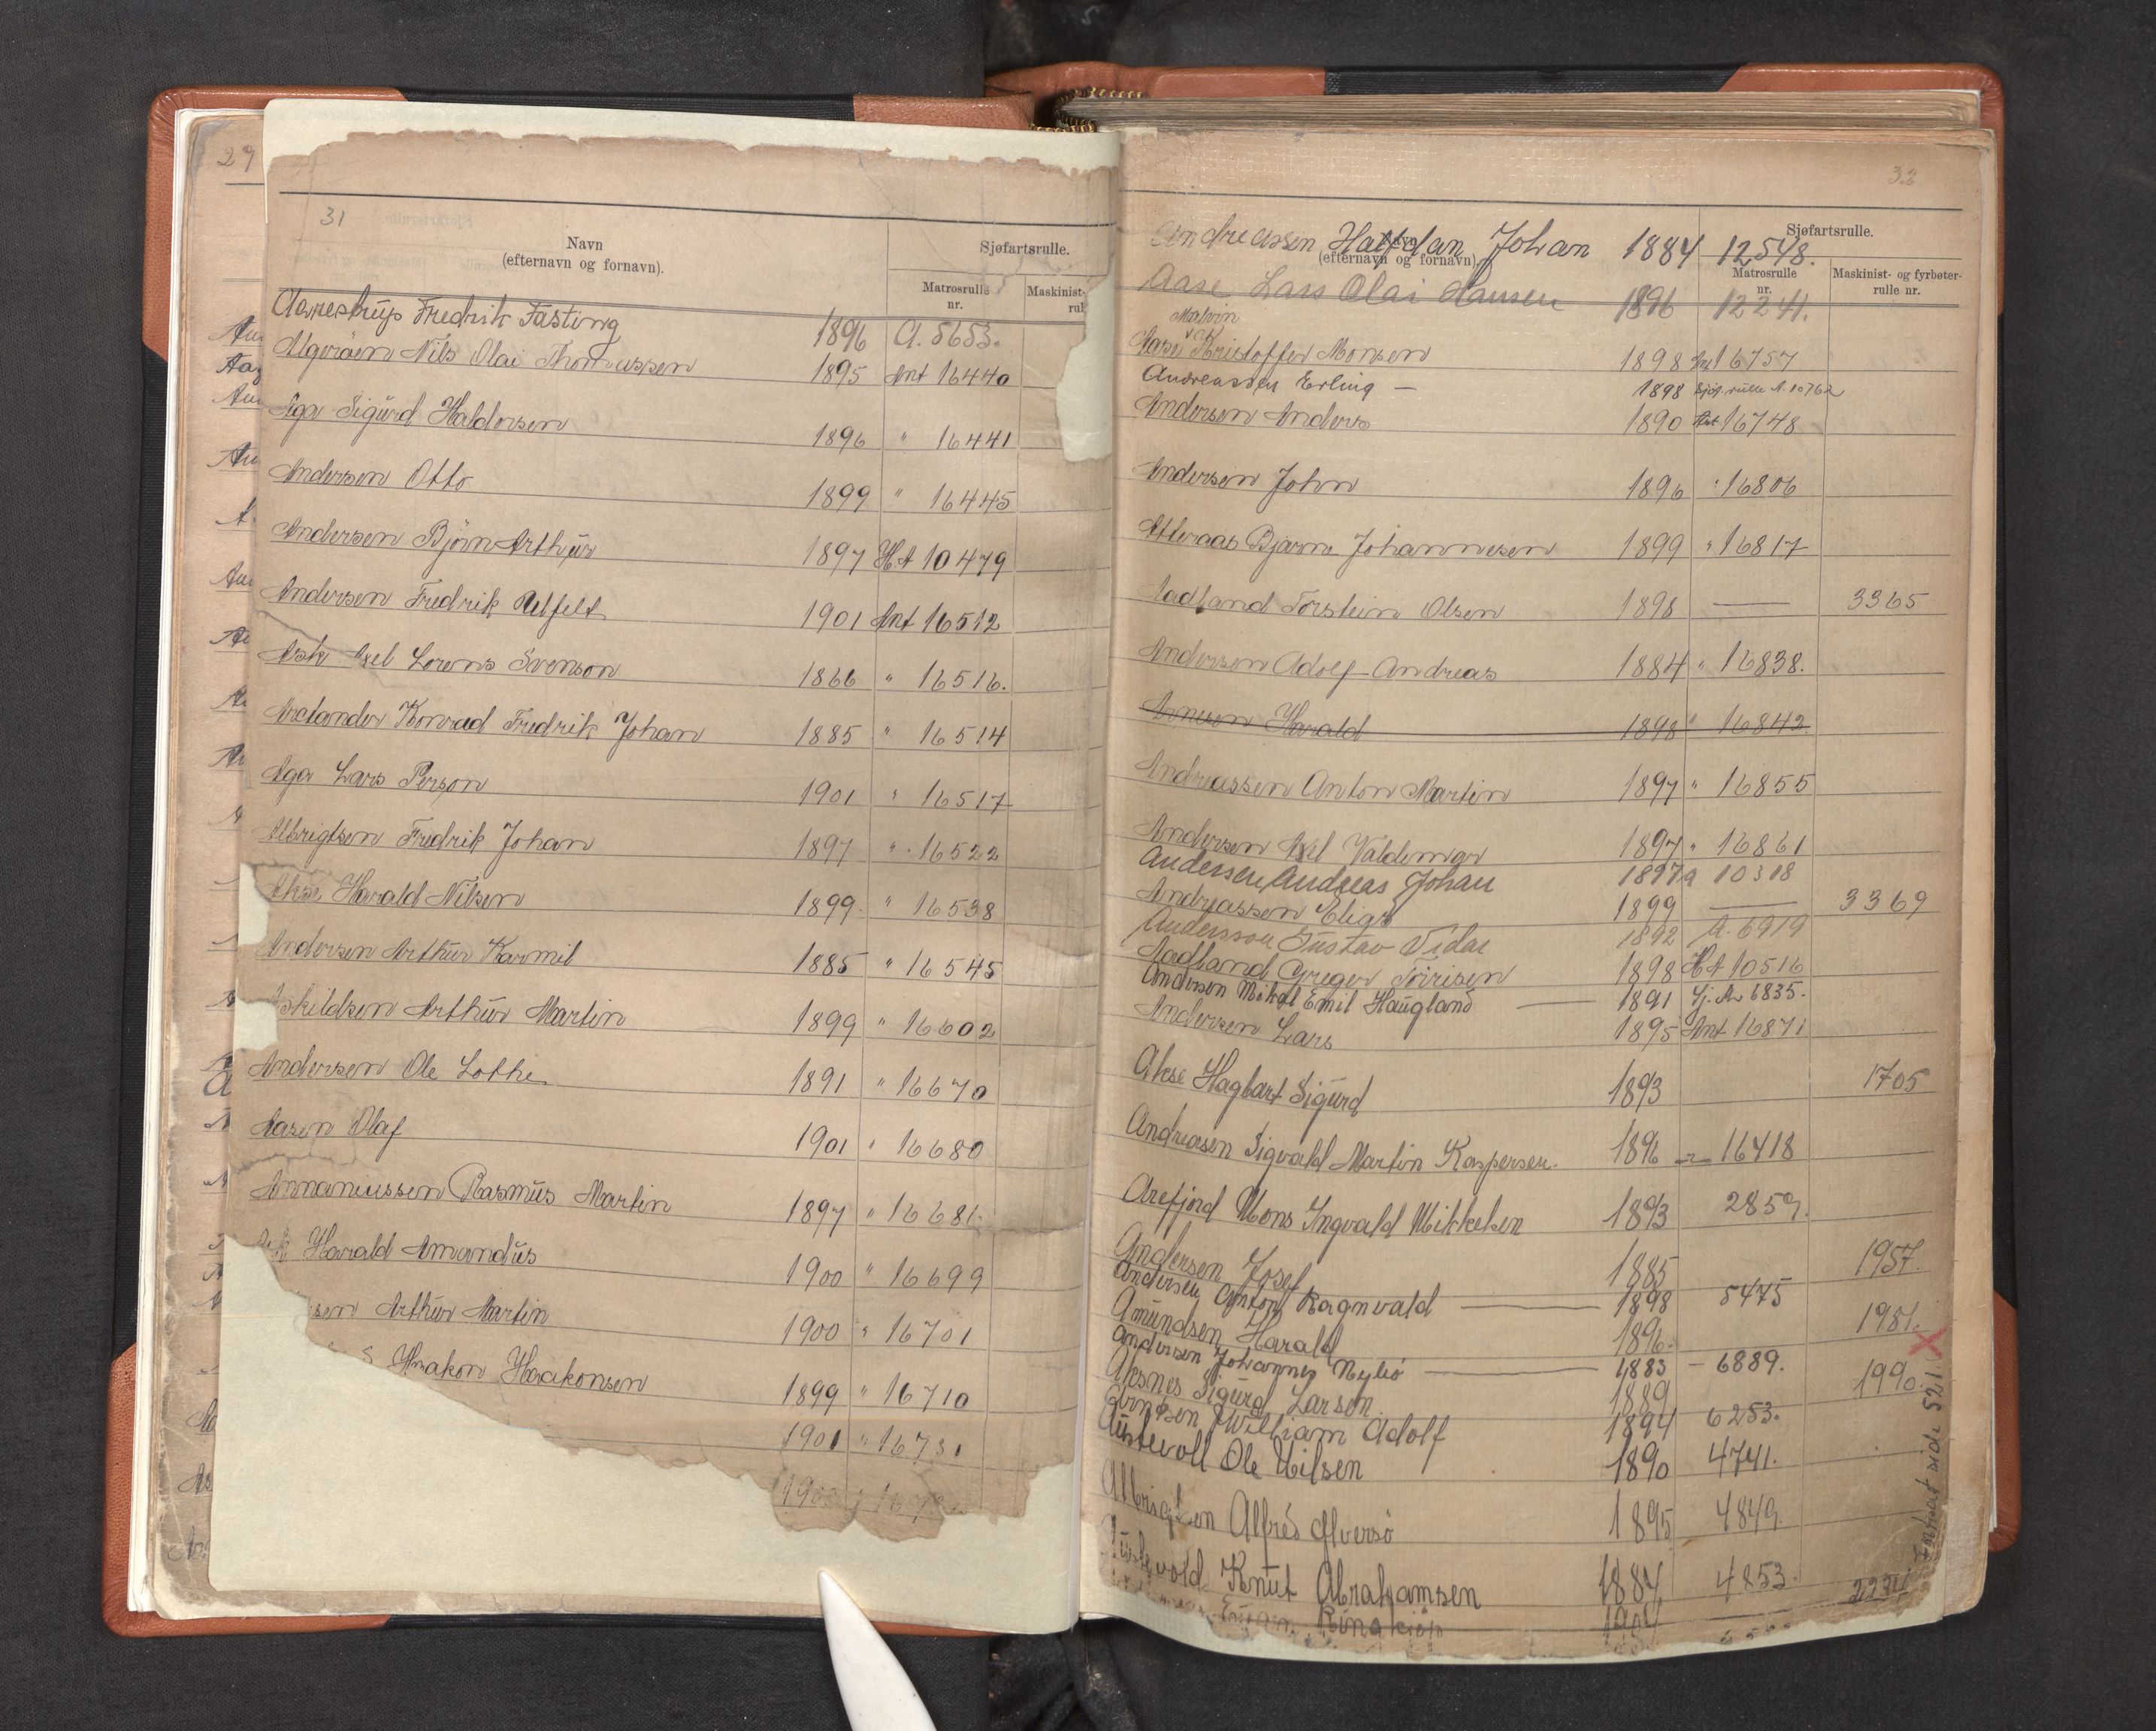 29
31
Navn
(efternavn og fornavn).
Sjøfartsrulle.
Matrosrulle
nr.
Maskinist-
rul
Aarrestrup Fredrik Fasting 1896 A. 5653.
Algeröen Nils Olai Thomassen 1895 Ant 16440
Aga Sigurd Haldorsen 1896 " 16441
Andersen Otto 1899 " 16445
Andersen Björn Arthur 1897 H.A 10479
Andersen Fredrik 1901 Ant 16512
Ask Axel Lorens Svenson 1866 " 16516.
Konrad Fredrik Johan 1885 " 16514
Aga Lars Person 1901 " 16517
Albrigtsen Fredrik Johan 1897 " 16522
Akse Harald Nilsen 1899 " 16538
Andersen Arthur Karmil 1885 " 16545
skildsen Arthur Martin 1899 " 16602
Andersen Ole Lothe 1891 " 16670
Aasen Olaf 1901 " 16680
Rasmus Martin 1897 " 16681
Harald Amandus 1900 " 16699
sen Arthur Martin 1900 " 16701
Haakon Haakonsen 1899 " 16710
1901 " 16731
32
Navn
(efternavn og fornavn).
Sjøfartsrulle.
Matrosrulle
nr.
Maskinist- og fyrbøter-
rulle nr.
Andreassen Halfdan Johan 1884 12548.
Aase Lars Olai Hansen 1896 12241.
Malvin
Aase Kristoffer Monsen 1898 Ant 16757
Andreassen Erling — 1898 Sjøf. rulle A. 10762
Andersen Anders 1890 Ant 16748
Andersen John 1896 " 16806
Atleraas Bjarne Johannesen 1899 " 16817
Aadland Torstein Olsen 1898 — 3365
Andersen Adolf Andreas 1884 " 16838.
Arnesen Harald 1898 " 16842
Andreassen Anton Martin 1897 " 16855
Andersen Axel Valdemar 1897 " 16861
Andersen Andreas Johan 1897 a 10318
Andreassen Eligr 1899 — 3369
Andersson Gustav Vidar 1892 A. 6919
Aadland Greger 1898 H A 10516
Andersen Mikal Emil Haugland — 1891 Sj. A 6835.
Andersen Lars 1895 Ant 16871
Akse Hagbart Sigurd 1893 1705
Andreasen Sigvald Martin Kaspersen. 1896 16418
Arefjord Mons Ingvald Mikkelsen 1893 2859.
Andersen Josef 1885 1957.
Andersen Anton Ragnvald — 1898 5475
Amundsen Harald 1896. 1981.
Andersen Johannes Nybö — 1883 - 6889.
Aksnes Sigurd Larsen 1889 1990.
William Adolf 1894 6253.
Austevoll Ole Nilsen 1890 4741.
Albrigtsen Alfred Alversö 1895 4849.
Austevold Knut Abrahamsen 1884 4853.
1904 2231
side 521.